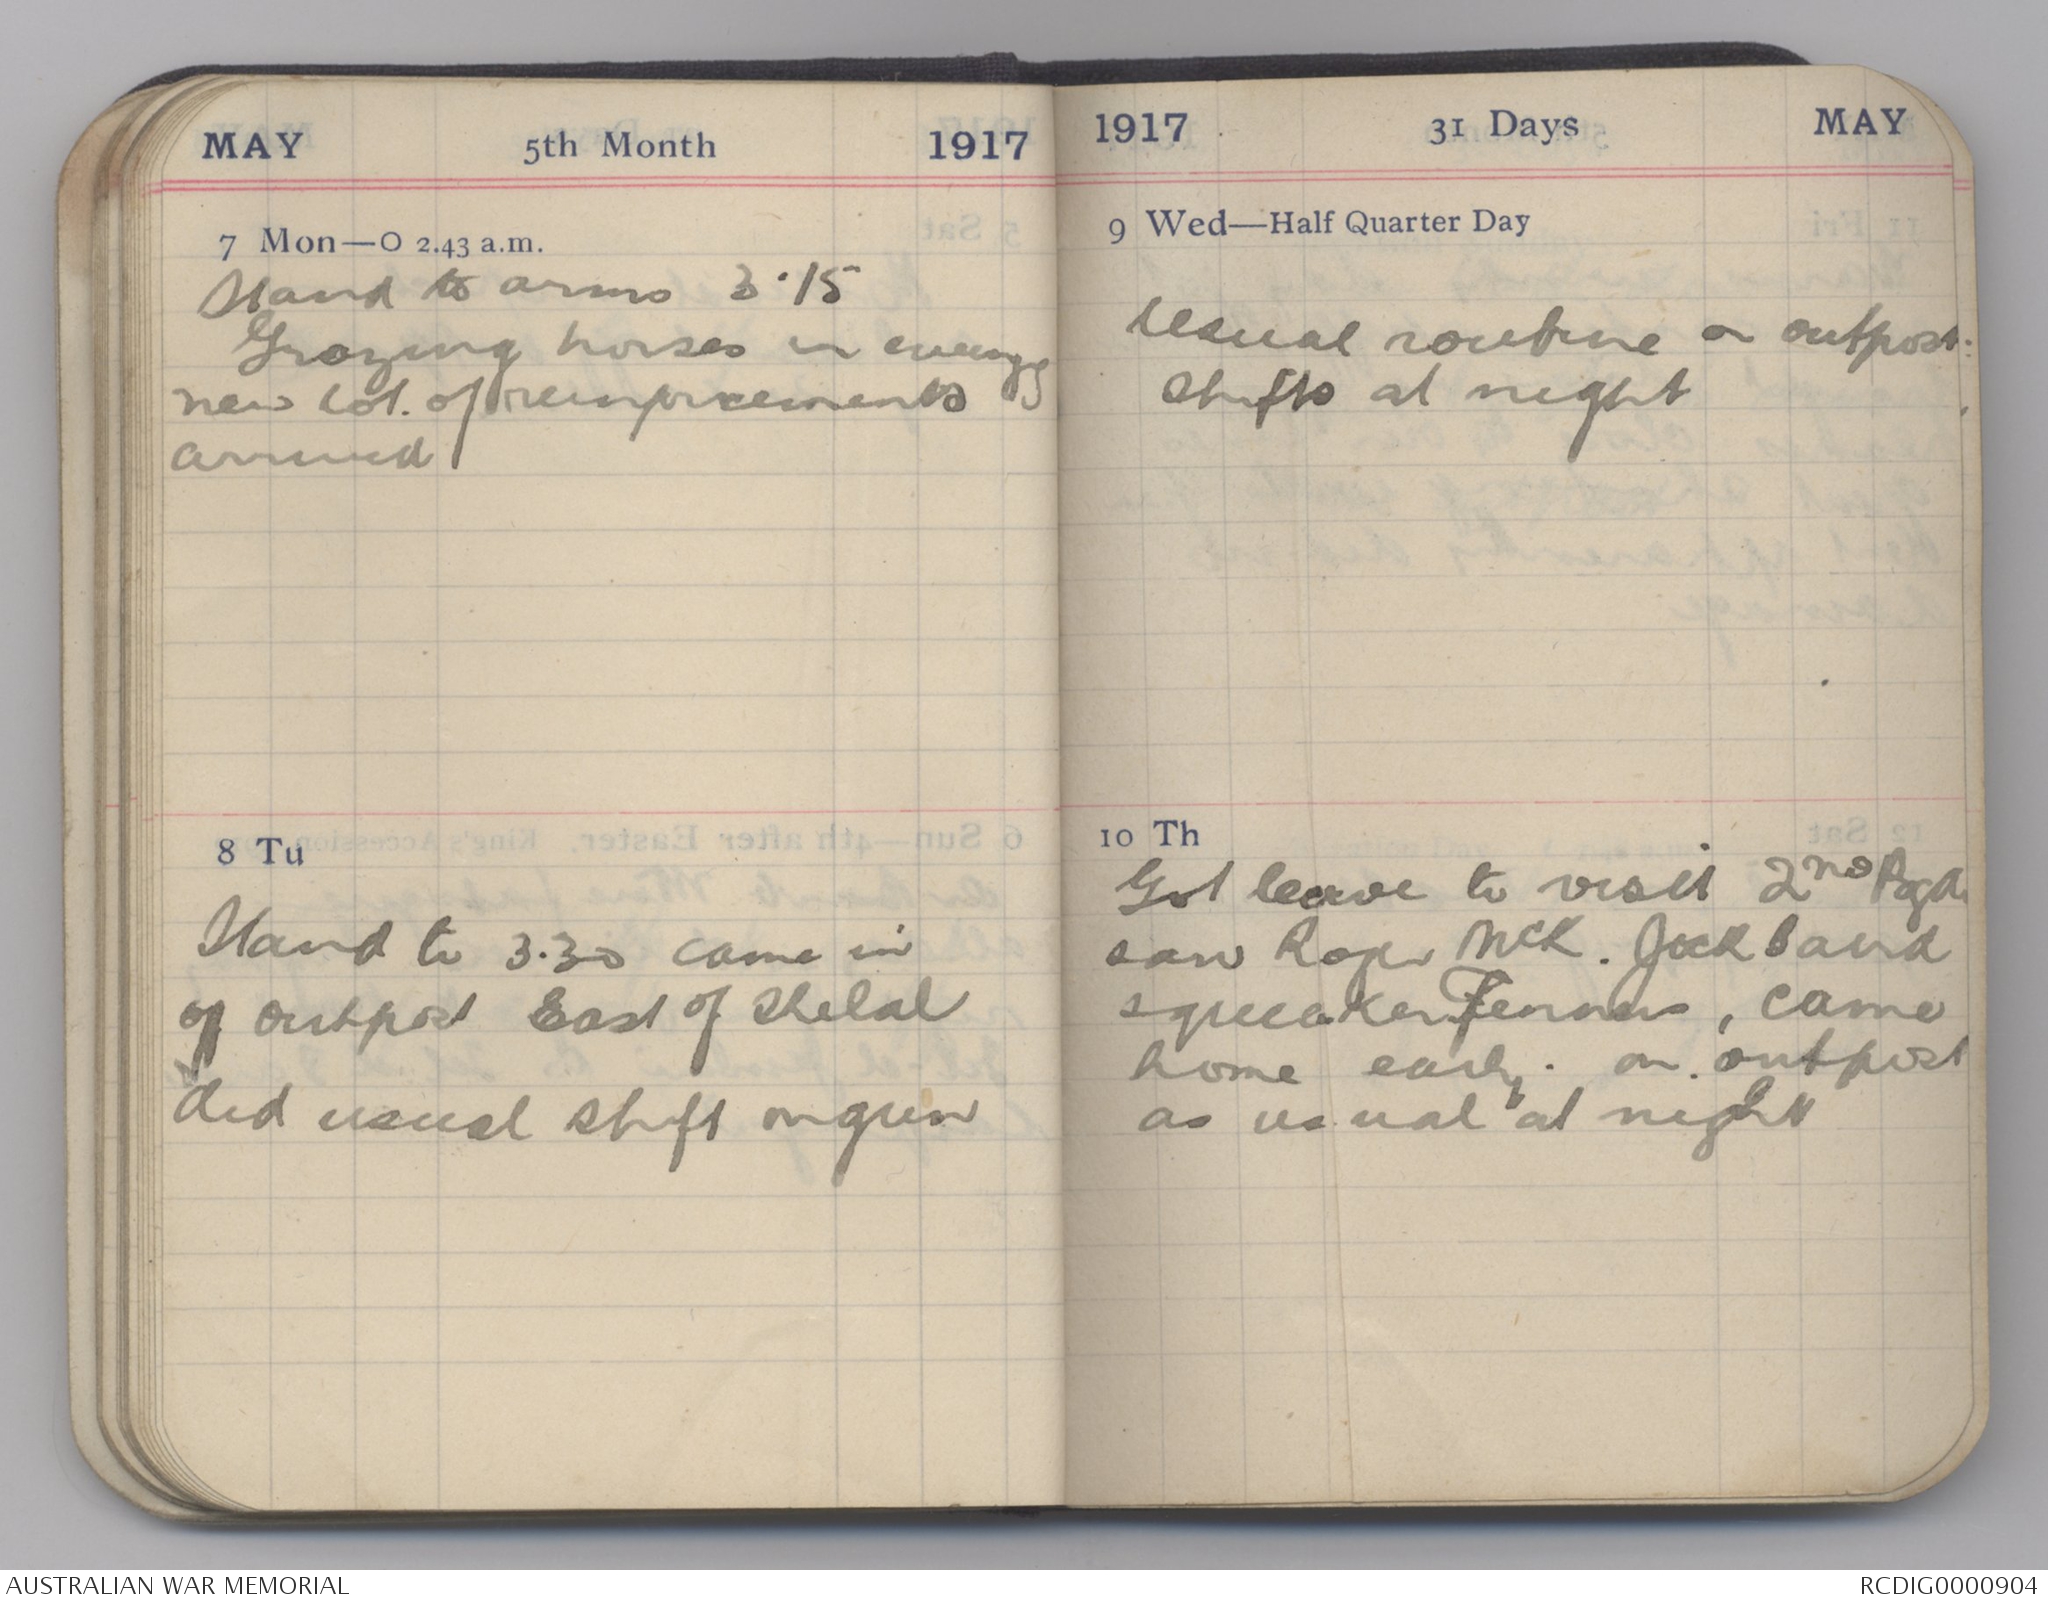 MAY 5th Month 1917
7 Mon—O 2.43 a.m.
Stand to arms 3.15
Grazing horses in evening
new lot. of reinforcements
arrived
8 Tu
Stand to 3.30 came in
of outpost East of Shelal
did usual shift on gun
1917 31 Days MAY
9 Wed—Half Quarter Day
Usual routine on outpost.
shifts at night
10 Th
Got leave to visit 2nd Bgde
saw Roger McK. Jack Baird
squeaker Fenner, came
home early. on outpost
as usual at night
AUSTRALIAN WAR MEMORIAL RCDIG0000904